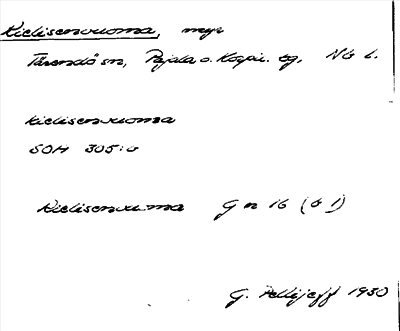 Kielisenvuoma, myr
Tärendö sn, Pajala o. Korpil. tg, Nb l.
kielisenvuoma
SOH 305:
Kielisenvuma G n 16 (ö 1)
G. Pellijeff 1950